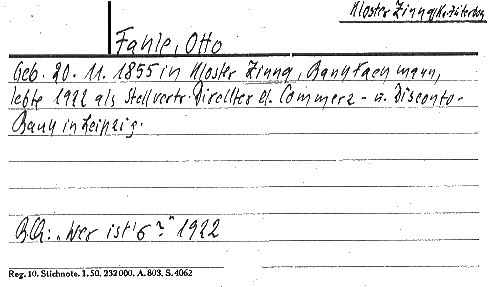 Kloster Zinna/Kr. Jüterbog
Fahle, Otto
Geb. 20. 11. 1855 in Kloster Zinna, Bankfachmann,
lebte 1922 als Stellvertr. Direktor d. Commerz- u. Disconto-
Bank in Leipzig.
BQ: „Wer ist's?" 1922
Reg. 10. Stichnote. 1. 50, 232000, A. 803, S. 4062